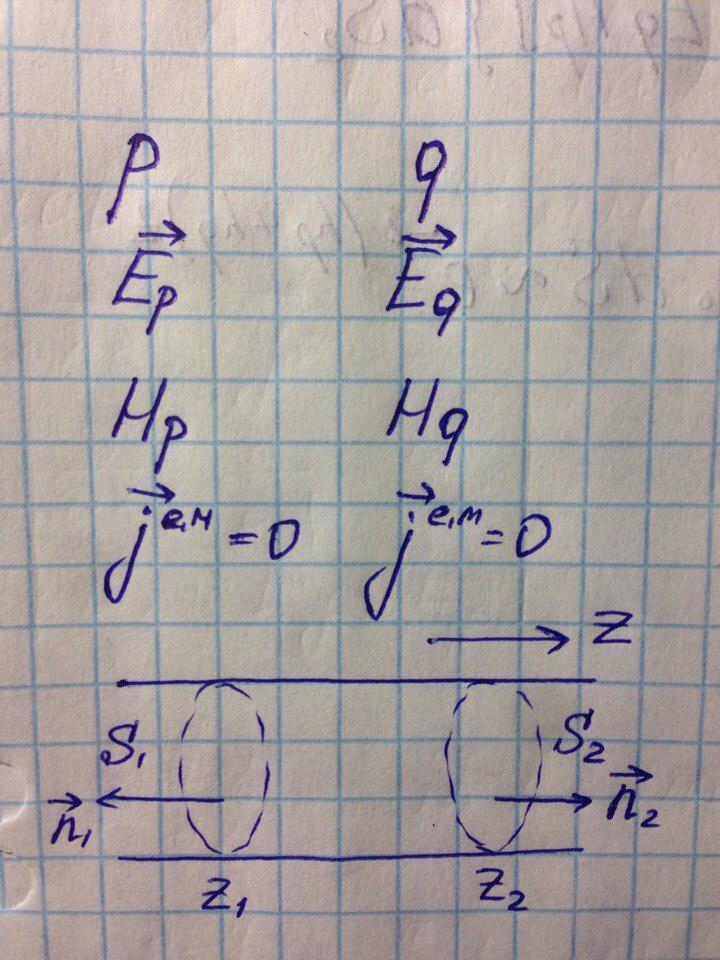 p q
E⃗p E⃗q
Hp Hq
j⃗ᵉ,ᴹ = 0 j⃗ᵉ,ᴹ = 0
Z
S₁ S₂
n⃗₁ n⃗₂
Z₁ Z₂